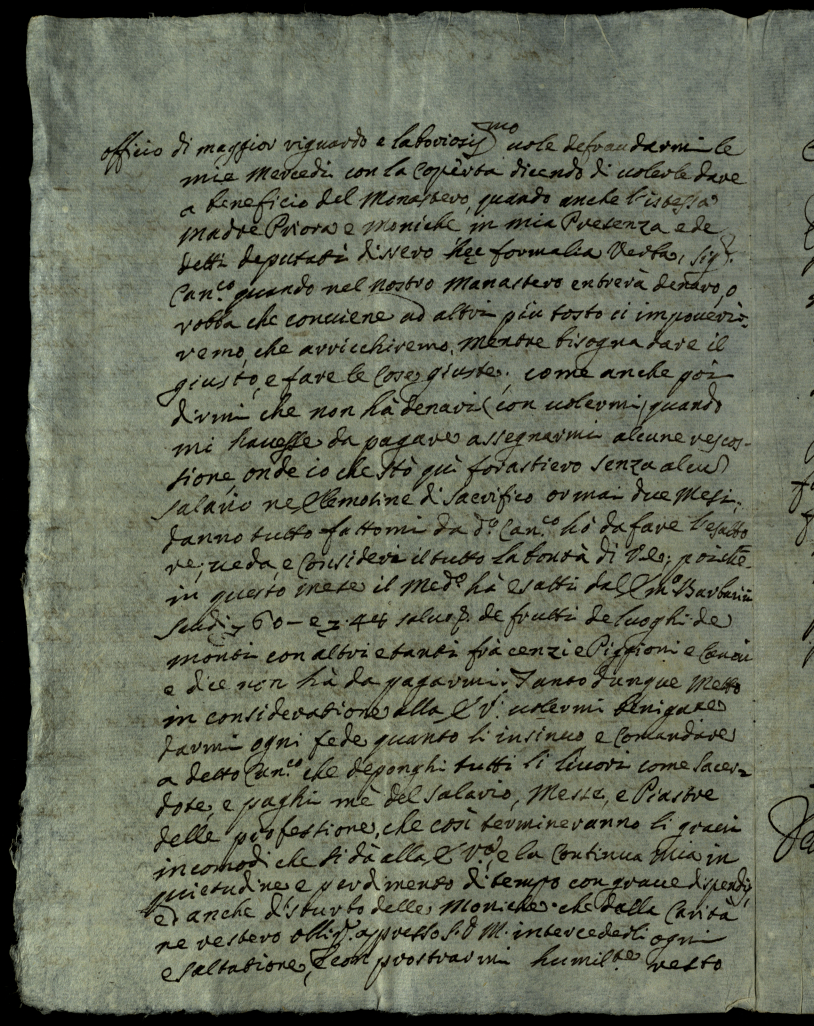 officio di maggior riguardo e laboriosiss.mo vole defraudarmi le
mie Mercedi con la Coperta dicendo di volerle dare
a beneficio del Monastero, quando anche l'istessa
Madre Priora e Moniche in mia Presenza e de
detti deputati dissero hęc formalia Verba, Sig.r
Can.co quando nel nostro Monastero entrerà denaro, o
robba che conviene ad altri più tosto ci impoveri-
remo, che arricchiremo, mentre bisogna dare il
giusto, e fare le Cose giuste. come anche poi
dirmi che non hà denari (con volermi) quando
mi havesse da pagare assegnarmi alcune rescos-
sione, onde io che stò quì forastiero senza alcun
salario ne Elemosine di Sacrifico ormai due Mesi,
danno tutto fattomi da d.o Can.co hò da fare l'esatto
re, veda, e Consideri il tutto la bontà di V.E. poiche
in questo mese il Med.o hà esatti dall' Barbarini
scudi 60 - e 44 de frutti de luoghi de
monti con altri etanti frà cenzi e Piggioni e
e dice non hà da pagarmi. Tanto dunque Metto
in consideratione alla E.V. volermi
darmi ogni fede quanto li insinuo e Comandare
a detto Can.co che deponghi tutti li livori come Sacer-
dote, e paghi mè del Salario, Messe, e Piastre
delle professione, che così termineranno li gravi
incomodi che si dà alla E.V. e la Continua mia in
quietudine e perdimento di tempo con grave
ed anche disturbo delle Moniche. che dalla Carità
ne restero appresso S.D.M. intercederli ogni
esaltatione, e con prostrarmi humil.te resto